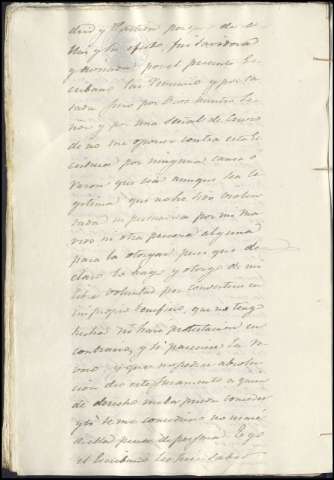 dad y Razon porque de e-
llas y su efecto, fui savidora
y avisada por el presente Es-
cribano las renuncio y por ca-
sada juro por Dios nuestro Se-
ñor y por una señal de Cruz
de no me oponer contra esta Es-
critura por ninguna causa o
razon que sea aunque sea le-
gitima que no he sido violen-
tada ni persuadida por mi ma-
rido ni otra persona alguna
para la otorgar pues que de-
claro la hago y otorgo de mi
libre voluntad por convertirse en
mi propio beneficio, que no tengo
hecha ni hare protestacion en
contrario, y si pareciere la re-
voco y que no pedire absolu-
cion de este juramento a quien
de derecho me la pueda conceder
y si se me concediere no usaré
de ella pena de perjura. E yo
el Escribano les hice saber